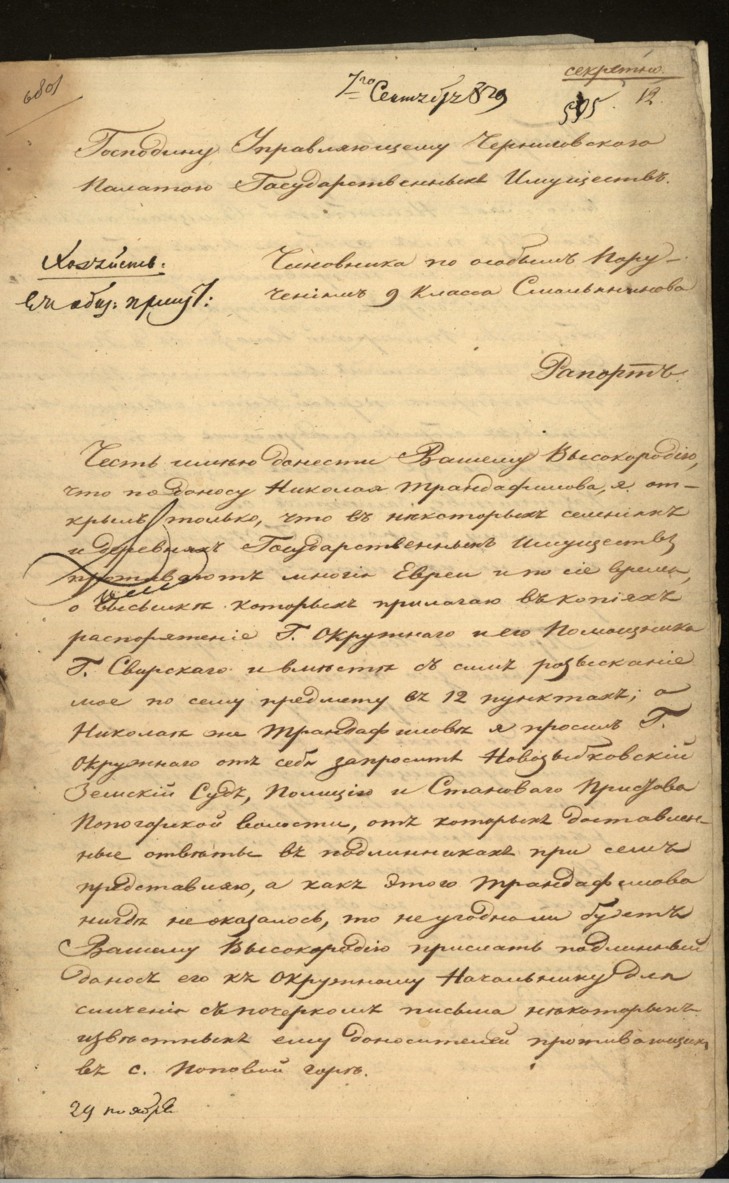 секретно.
6801
7го Сентября 839
595. 12.
Господину Управляющему Черниговскою
Палатою Государственныхъ Имуществъ.
Хозяйств:
Чиновника по особымъ Пору-
ченіямъ 9 Класса Смольянинова
Рапортъ.
Честь имѣю донести Вашему Высокородію,
что по доносу Николая Трандафилова, я от-
крылъ только, что въ нѣкоторыхъ селеніяхъ
и деревняхъ Государственныхъ Имуществъ
проживаютъ многія Евреи и по сіе время,
о высылкѣ которыхъ прилагаю въ копіяхъ
распоряженіе Г. Окружнаго и его Помощника
Г. Свирскаго и вмѣстѣ съ симъ розысканіе
мое по сему предмету въ 12 пунктахъ; а
Николая же Трандафилова я просилъ Г.
Окружнаго отъ себя запросить Новозыбковскій
Земскій Судъ, Полицію и Становаго Пристава
Попогорской волости, отъ которыхъ доставлен-
ные отвѣты въ подлинникахъ при семъ
представляю, а какъ этого Трандафилова
нигдѣ не оказалось, то не угодно ли будетъ
Вашему Высокородію прислать подлинный
доносъ его къ Окружному Начальнику для
сличенія съ почеркомъ письма нѣкоторыхъ
извѣстныхъ ему доносителей проживающихъ
въ с. Поповой горѣ.
29 ноября